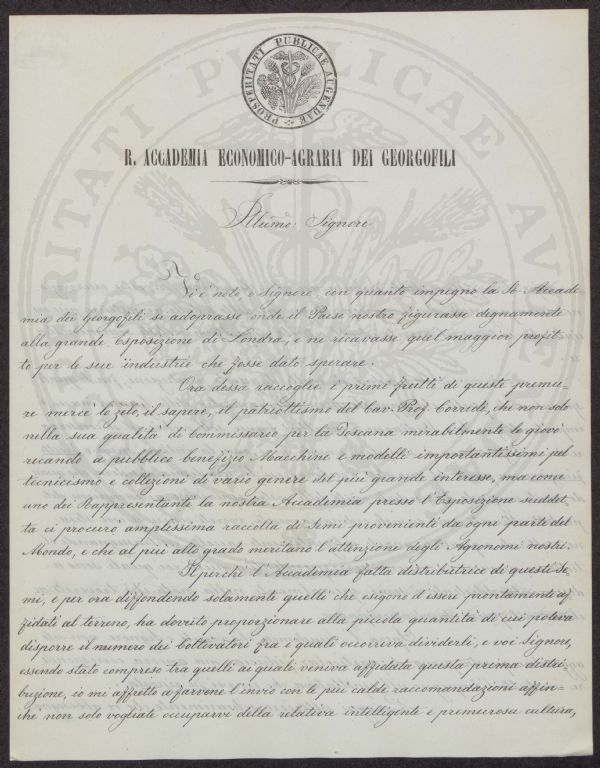 PROSPERITATI PUBLICAE AUGENDAE
R. ACCADEMIA ECONOMICO-AGRARIA DEI GEORGOFILI
Illumo: Signore
Vi è noto, o Signore, con quanto impegno la R. Accade
mia dei Georgofili si adoprasse onde il Paese nostro figurasse degnamente
alla grande Esposizione di Londra, e ne ricavasse quel maggior profit-
to per le sue industrie che fosse dato sperare.
Ora dessa raccoglie i primi frutti di queste premu-
re mercè lo zelo, il sapere, il patriottismo del Cav. Prof. Corridi, che non solo
nella sua qualità di Commissario per la Toscana mirabilmente le giovò
recando a pubblico benefizio Macchine e modelli importantissimi pel
tecnicismo e collezioni di vario genere del più grande interesse, ma come
uno dei Rappresentanti la nostra Accademia presso l'Esposizione suddet-
ta ci procurò amplissima raccolta di Semi provenienti da ogni parte del
Mondo, e che al più alto grado meritano l'attenzione degli Agronomi nostri.
Il perchè l'Accademia fatta distributrice di questi Se-
mi, e per ora diffondendo solamente quelli che esigono d'essere prontamente af-
fidati al terreno, ha dovuto proporzionare alla piccola quantità di cui poteva
disporre il numero dei Coltivatori fra i quali occorreva dividerli, e voi Signore,
essendo stato compreso tra quelli ai quali veniva affidata questa prima distri-
buzione, io mi affretto a farvene l'invio con le più calde raccomandazioni affin-
chè non solo vogliate occuparvi della relativa intelligente e premurosa cultura,